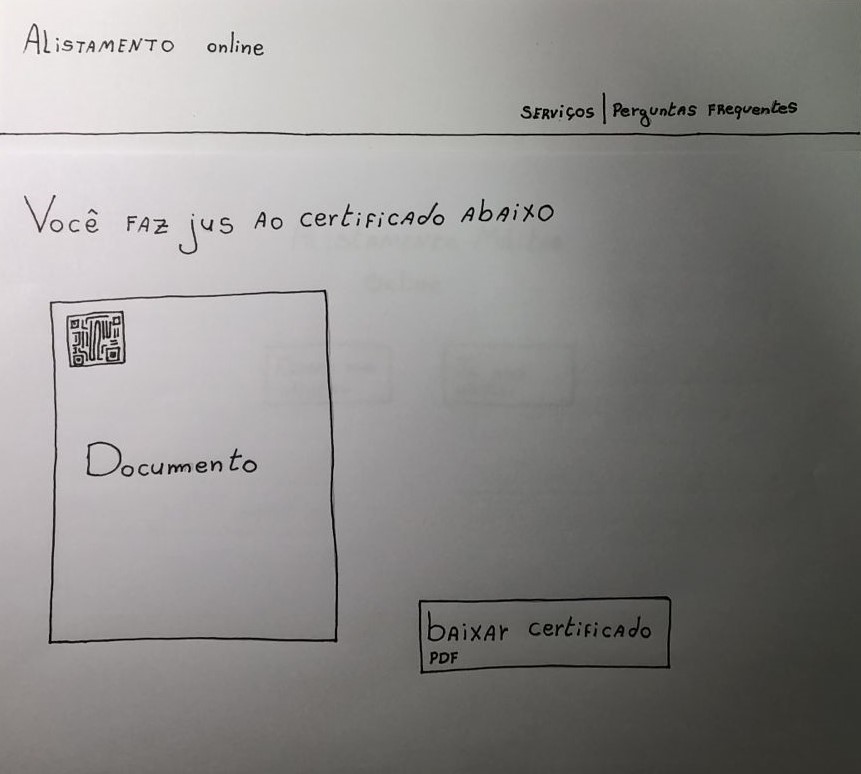 Alistamento online
Serviços | Perguntas Frequentes
Você faz jus ao certificado abaixo
Documento
baixar certificado
PDF